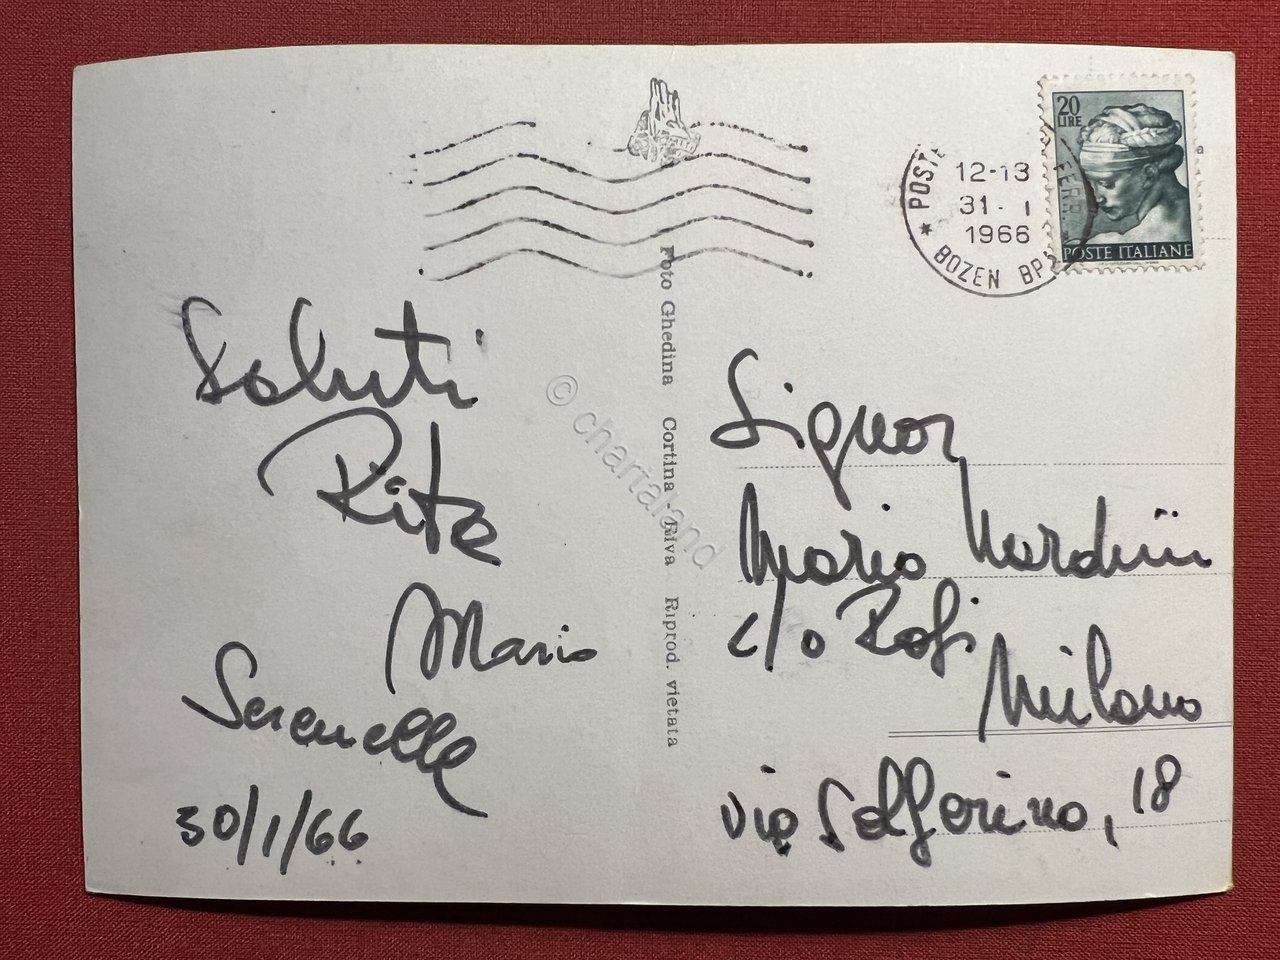 20
LIRE
POSTE ITALIANE
POSTE
FERR.
12-13
31-1
1966
* BOZEN BP
Saluti
Rita
Mario
Serenella
30/1/66
Foto Ghedina Cortina - Riva Riprod. vietata
© chartaland
Signor
Mario Nardini
c/o
Milano
via Solferino, 18